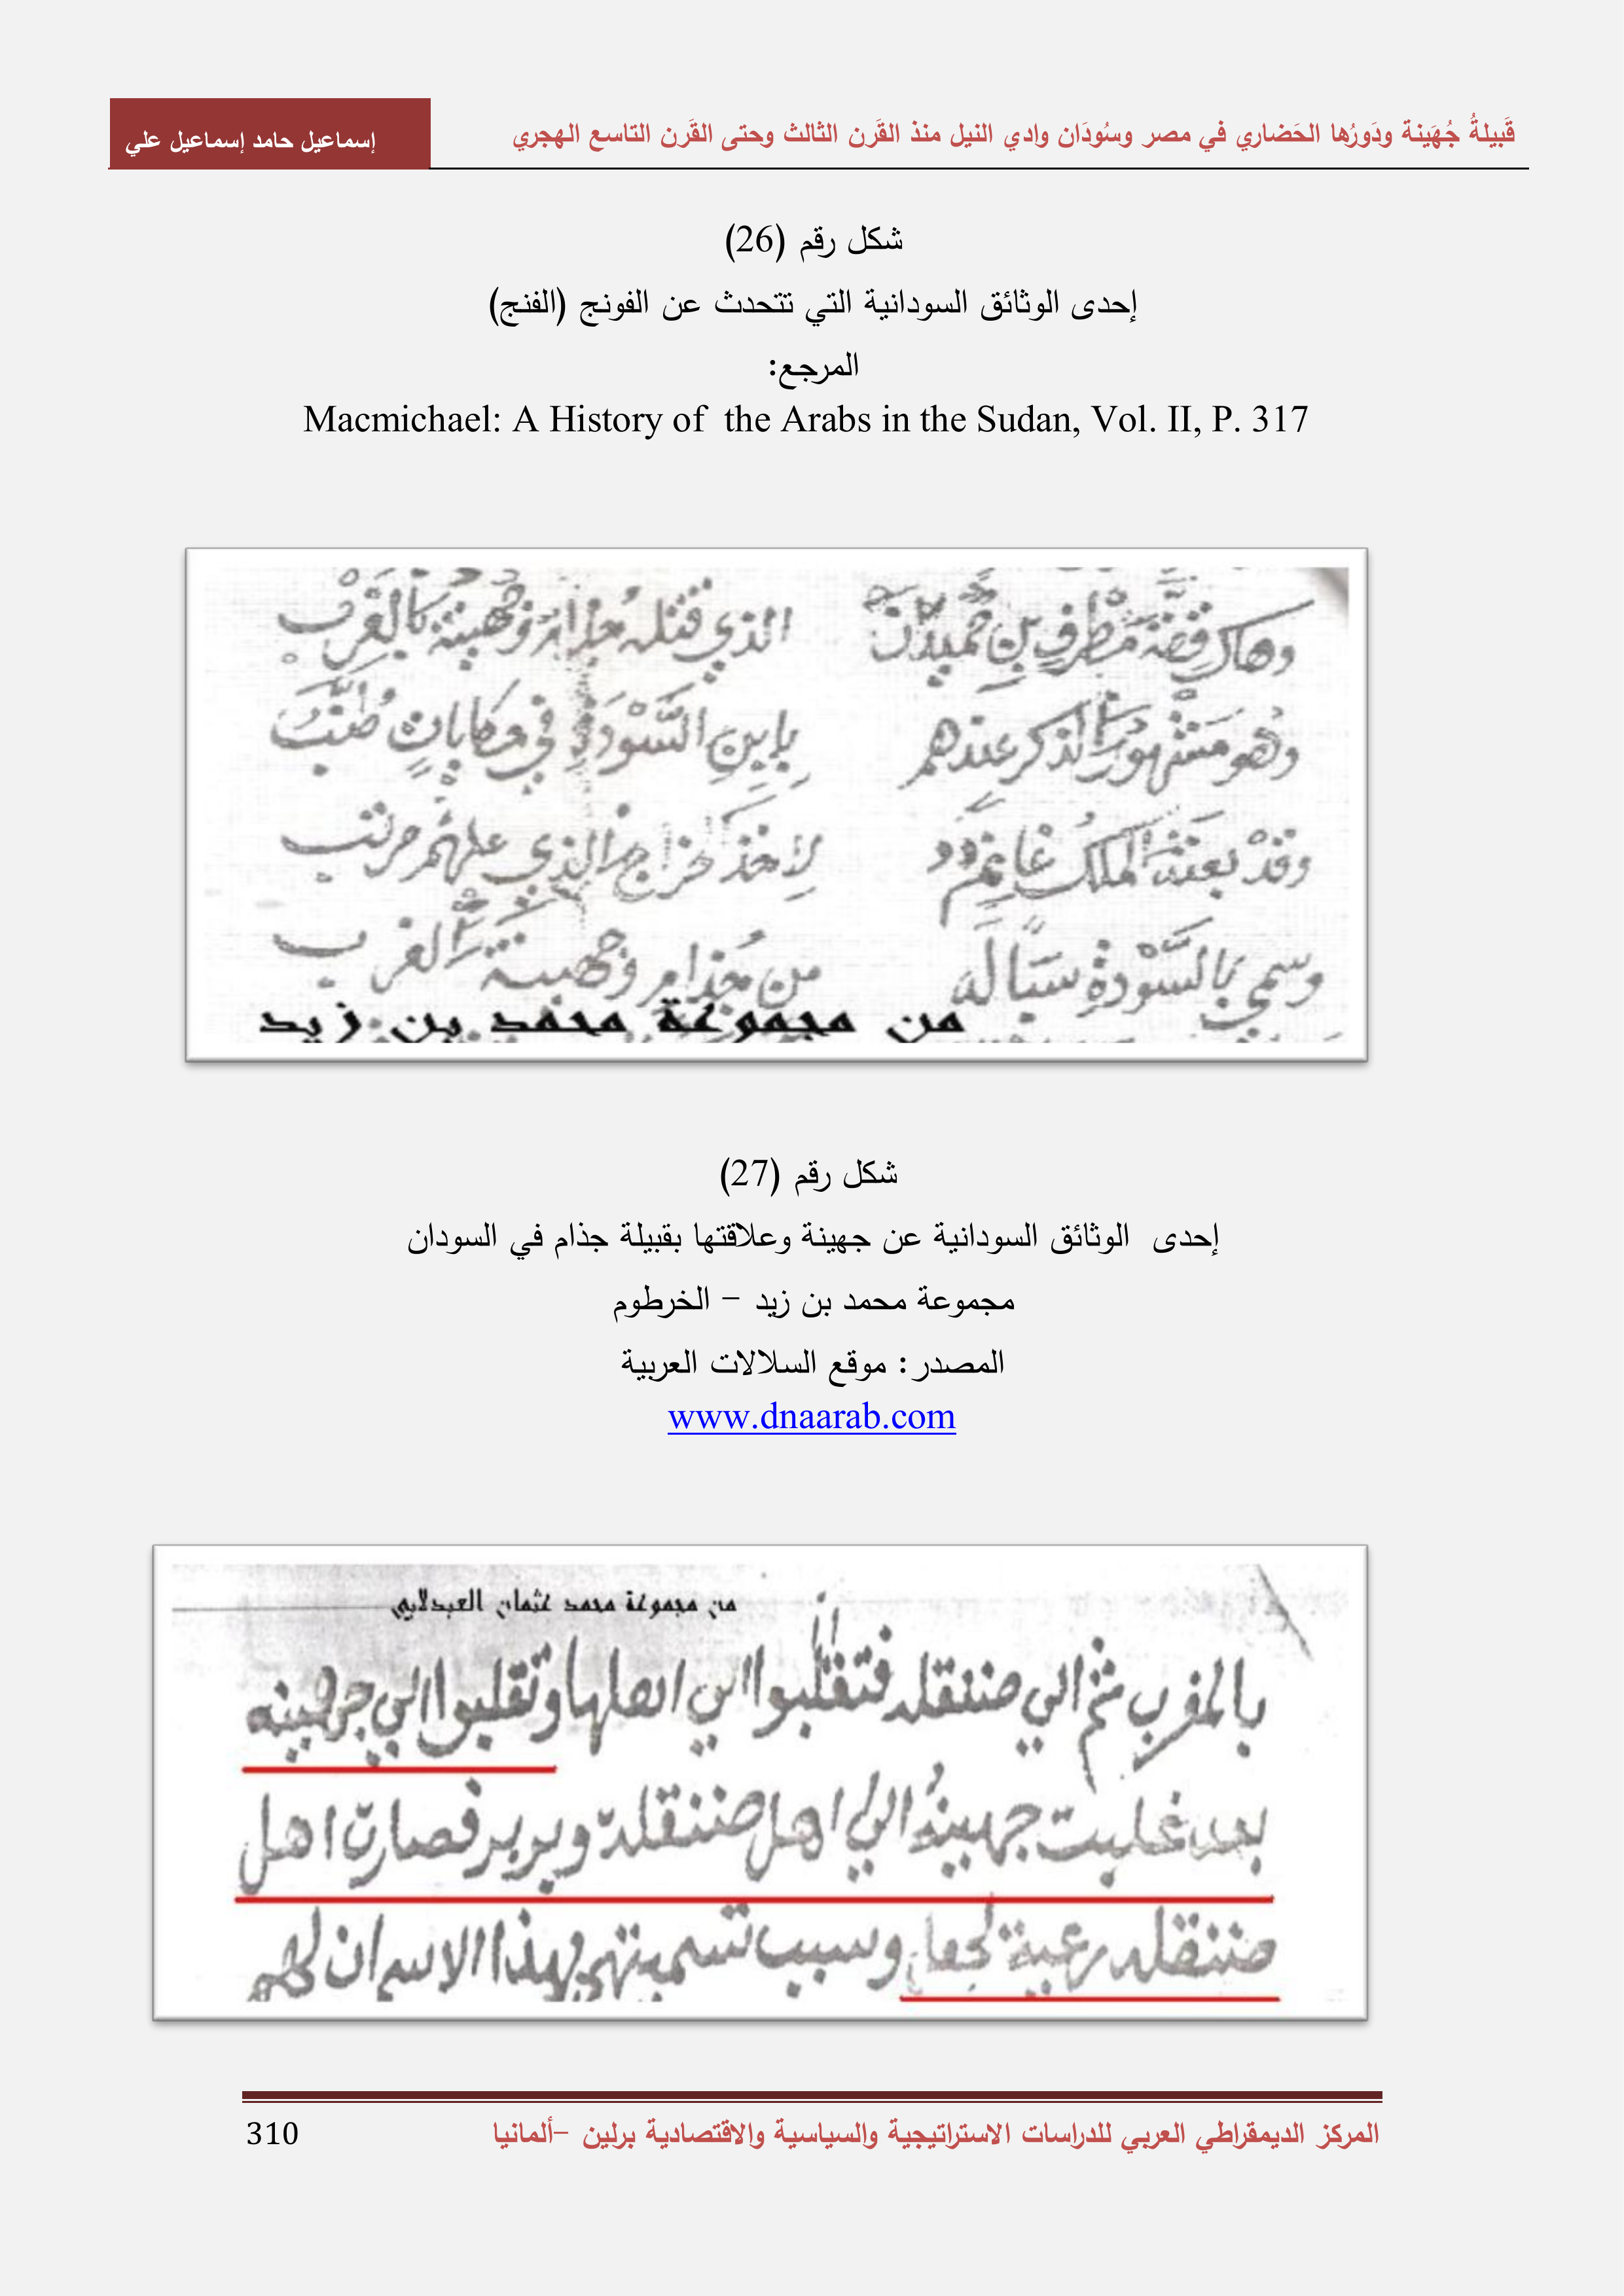 قَبيلةُ جُهَينة ودَورُها الحَضاري في مصر وسُودَان وادي النيل منذ القَرن الثالث وحتى القَرن التاسع الهجري
إسماعيل حامد إسماعيل علي
شكل رقم (26)
إحدى الوثائق السودانية التي تتحدث عن الفونج (الفنج)
المرجع:
Macmichael: A History of the Arabs in the Sudan, Vol. II, P. 317
وهاك قصة مطرف بن حميدان الذي قتله جذام وجهينة بالغرب
وهو مشهور الذكر عندهم بابن السودة في حكايات
وقد بعثه الملك غانم لاخذ خراج الذي عليهم
وسمي بالسودة من جذام وجهينة الغرب
من مجموعة محمد بن زيد
شكل رقم (27)
إحدى الوثائق السودانية عن جهينة وعلاقتها بقبيلة جذام في السودان
مجموعة محمد بن زيد – الخرطوم
المصدر: موقع السلالات العربية
www.dnaarab.com
من مجموعة محمد عثمان العبدلابي
بالمغرب ثم الي ضنقله فتغلبوا الي اهلها وتقلبوا الي جهينه
بعد غلبت جهينة الي اهل ضنقله وبربر فصارت اهل
ضنقله رعية لجهل وسبب تسميتهم بهذا الاسم ان لهم
المركز الديمقراطي العربي للدراسات الاستراتيجية والسياسية والاقتصادية برلين –ألمانيا
310